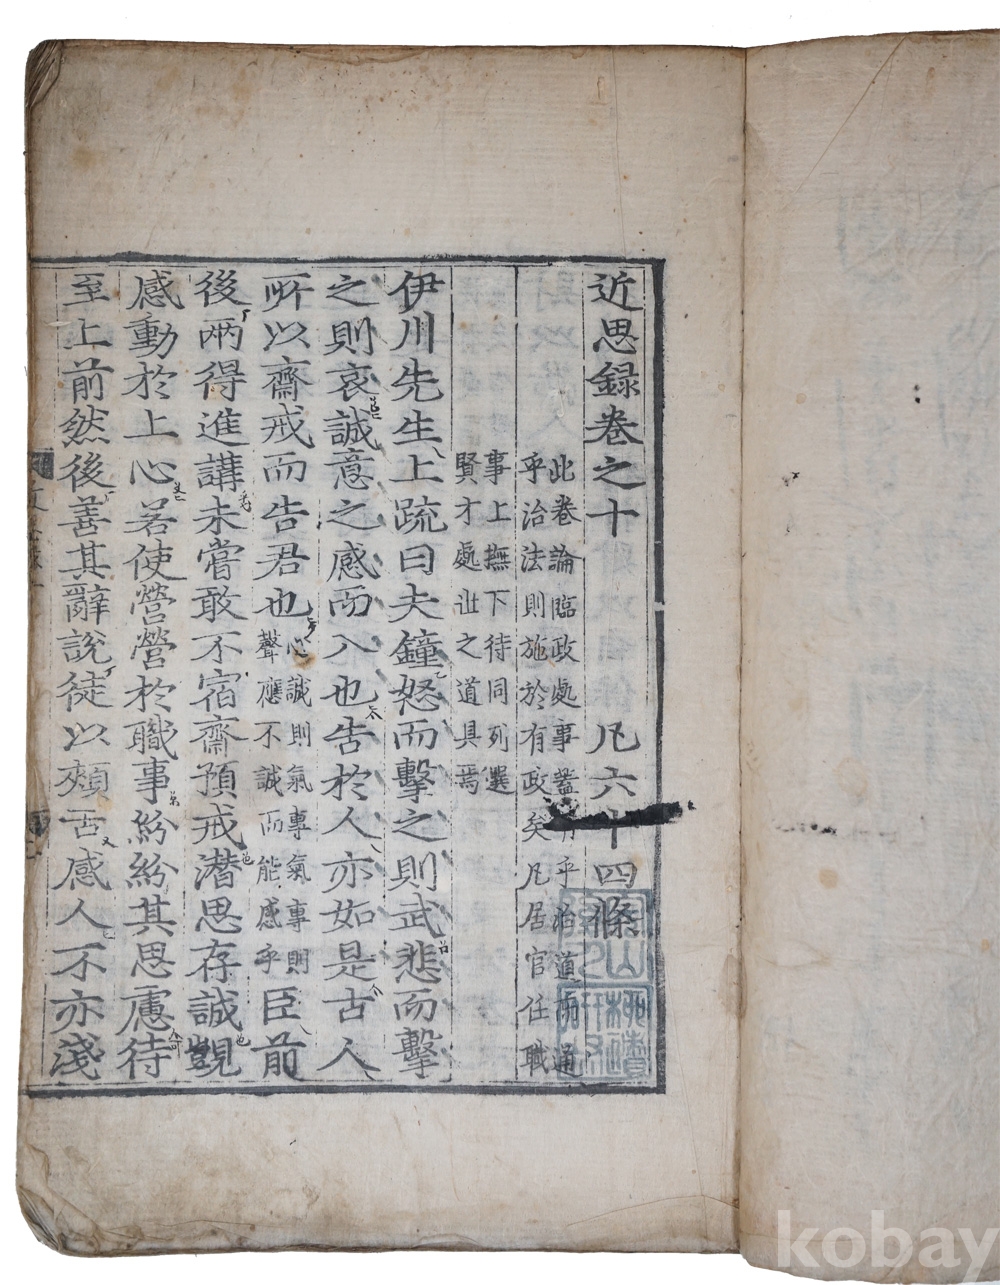 近思録卷之十 凡六十四條
此卷論臨政處事蓋 乎治道而通
乎治法則施於有政矣凡居官任職
事上撫下待同列選
賢才處世之道具焉
伊川先生上疏曰夫鐘怒而擊之則武悲而擊
之則哀誠意之感而入也告於人亦如是古人
所以齋戒而告君也
心誠則氣專氣專則
聲應不誠而能感乎
臣前
後兩得進講未嘗敢不宿齋預戒潛思存誠覬
感動於上心若使營營於職事紛紛其思慮待
至上前然後善其辭說徒以頰舌感人不亦淺
kobay